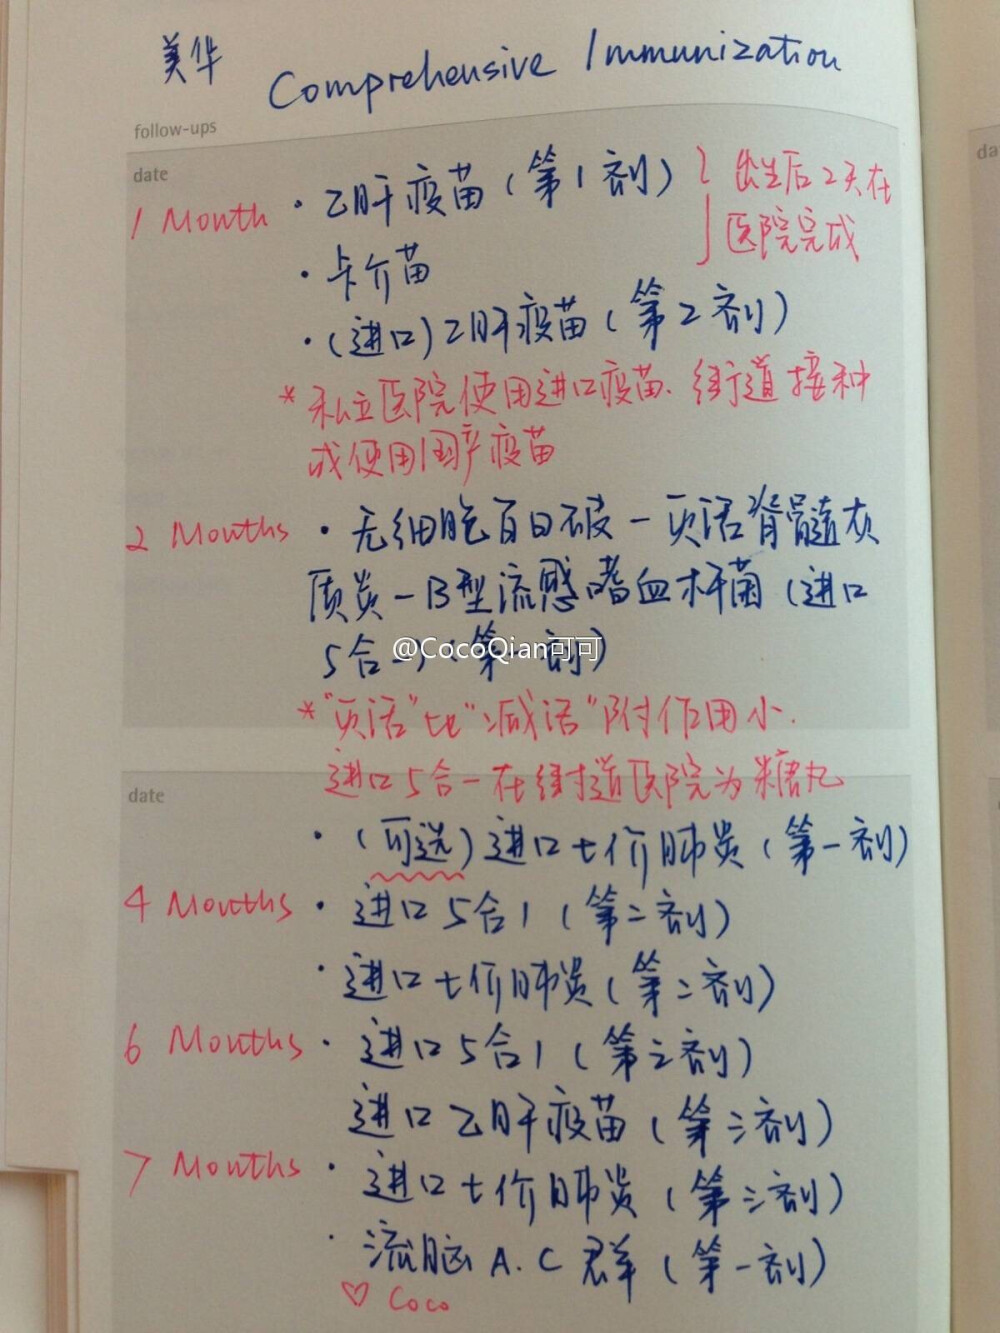 美华 Comprehensive Immunization
follow-ups
date
1 Month · 乙肝疫苗(第1剂) } 出生后2天在
医院完成
· 卡介苗
· (进口)乙肝疫苗(第2剂)
* 私立医院使用进口疫苗.街道接种
或使用国产疫苗
2 Months · 无细胞百白破-灭活脊髓灰
质炎-B型流感嗜血杆菌(进口
5合一)(第一剂)
@CocoQian可可
* "灭活"比"减活"附作用小.
进口5合一在街道医院为糖丸
date
· (可选)进口七价肺炎(第一剂)
4 Months · 进口5合1(第二剂)
· 进口七价肺炎(第二剂)
6 Months · 进口5合1(第三剂)
进口乙肝疫苗(第三剂)
7 Months · 进口七价肺炎(第三剂)
· 流脑A.C群(第一剂)
♡ Coco
da